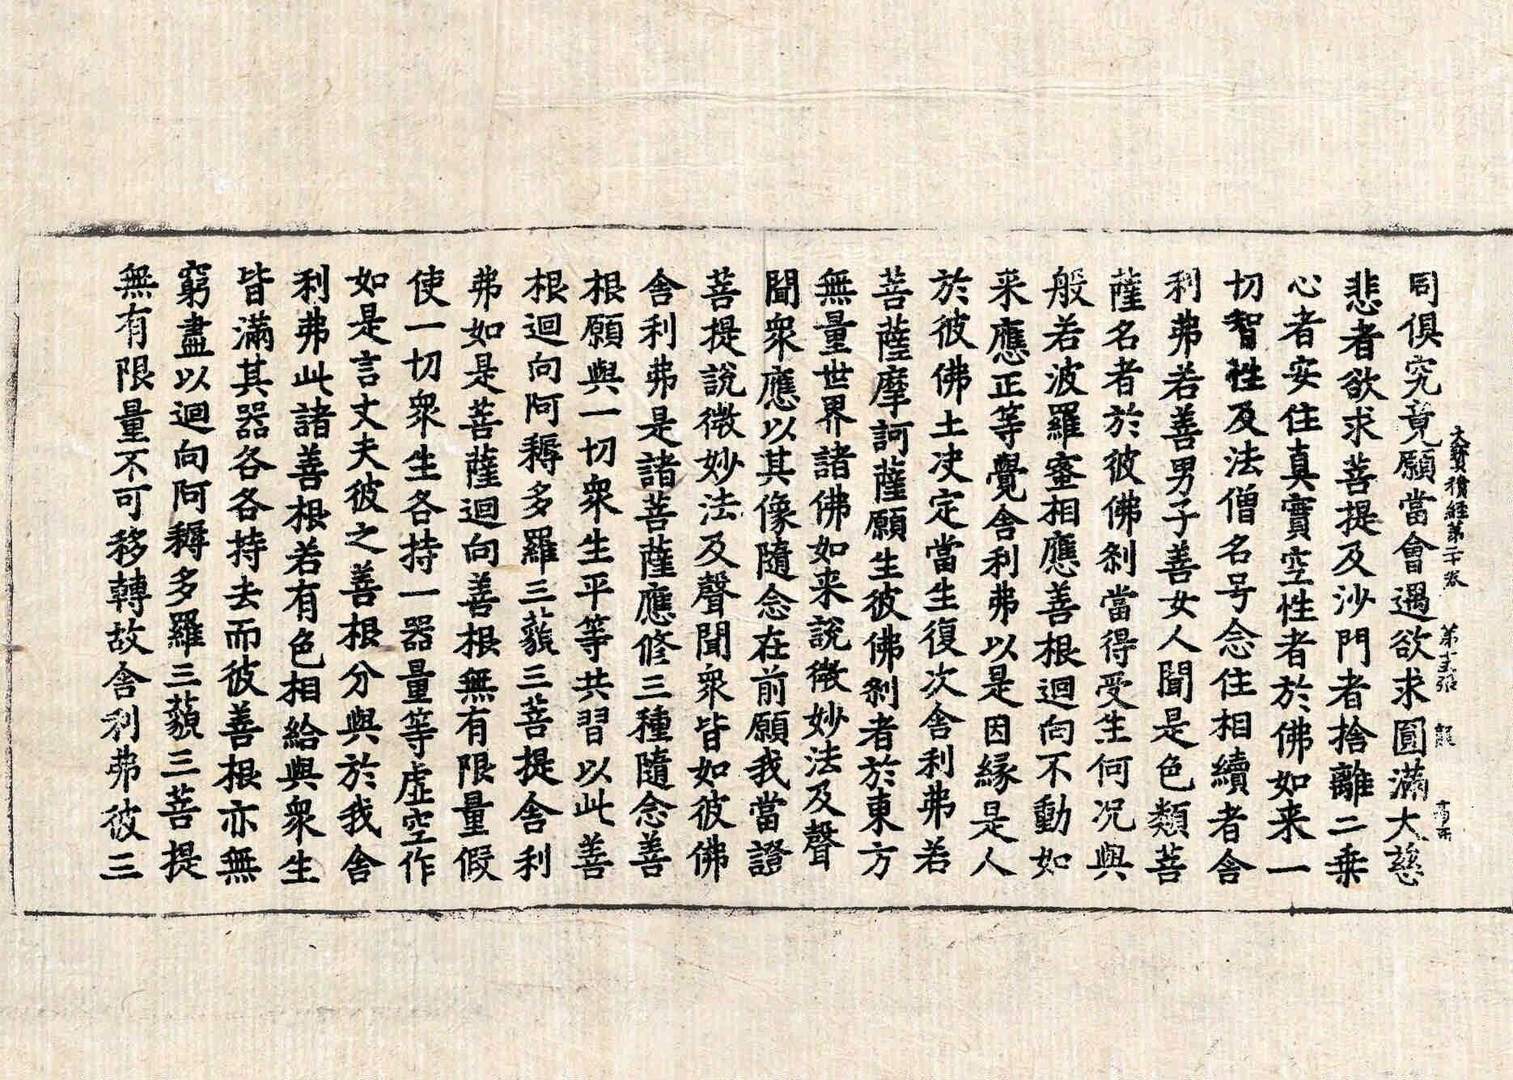 大寶積經第二十卷 第十五張 龍
同俱究竟願當會遇欲求圓滿大慈
悲者欲求菩提及沙門者捨離二乘
心者安住真實空性者於佛如来一
切智性及法僧名号念住相續者舍
利弗若善男子善女人聞是色類菩
薩名者於彼佛刹當得受生何况與
般若波羅蜜相應善根迴向不動如
来應正等覺舍利弗以是因緣是人
於彼佛土决定當生復次舍利弗若
菩薩摩訶薩願生彼佛刹者於東方
無量世界諸佛如来說微妙法及聲
聞衆應以其像隨念在前願我當證
菩提說微妙法及聲聞衆皆如彼佛
舍利弗是諸菩薩應修三種隨念善
根願與一切衆生平等共習以此善
根迴向阿耨多羅三藐三菩提舍利
弗如是菩薩迴向善根無有限量假
使一切衆生各持一器量等虚空作
如是言丈夫彼之善根分與於我舍
利弗此諸善根若有色相給與衆生
皆滿其器各各持去而彼善根亦無
窮盡以迴向阿耨多羅三藐三菩提
無有限量不可移轉故舍利弗彼三